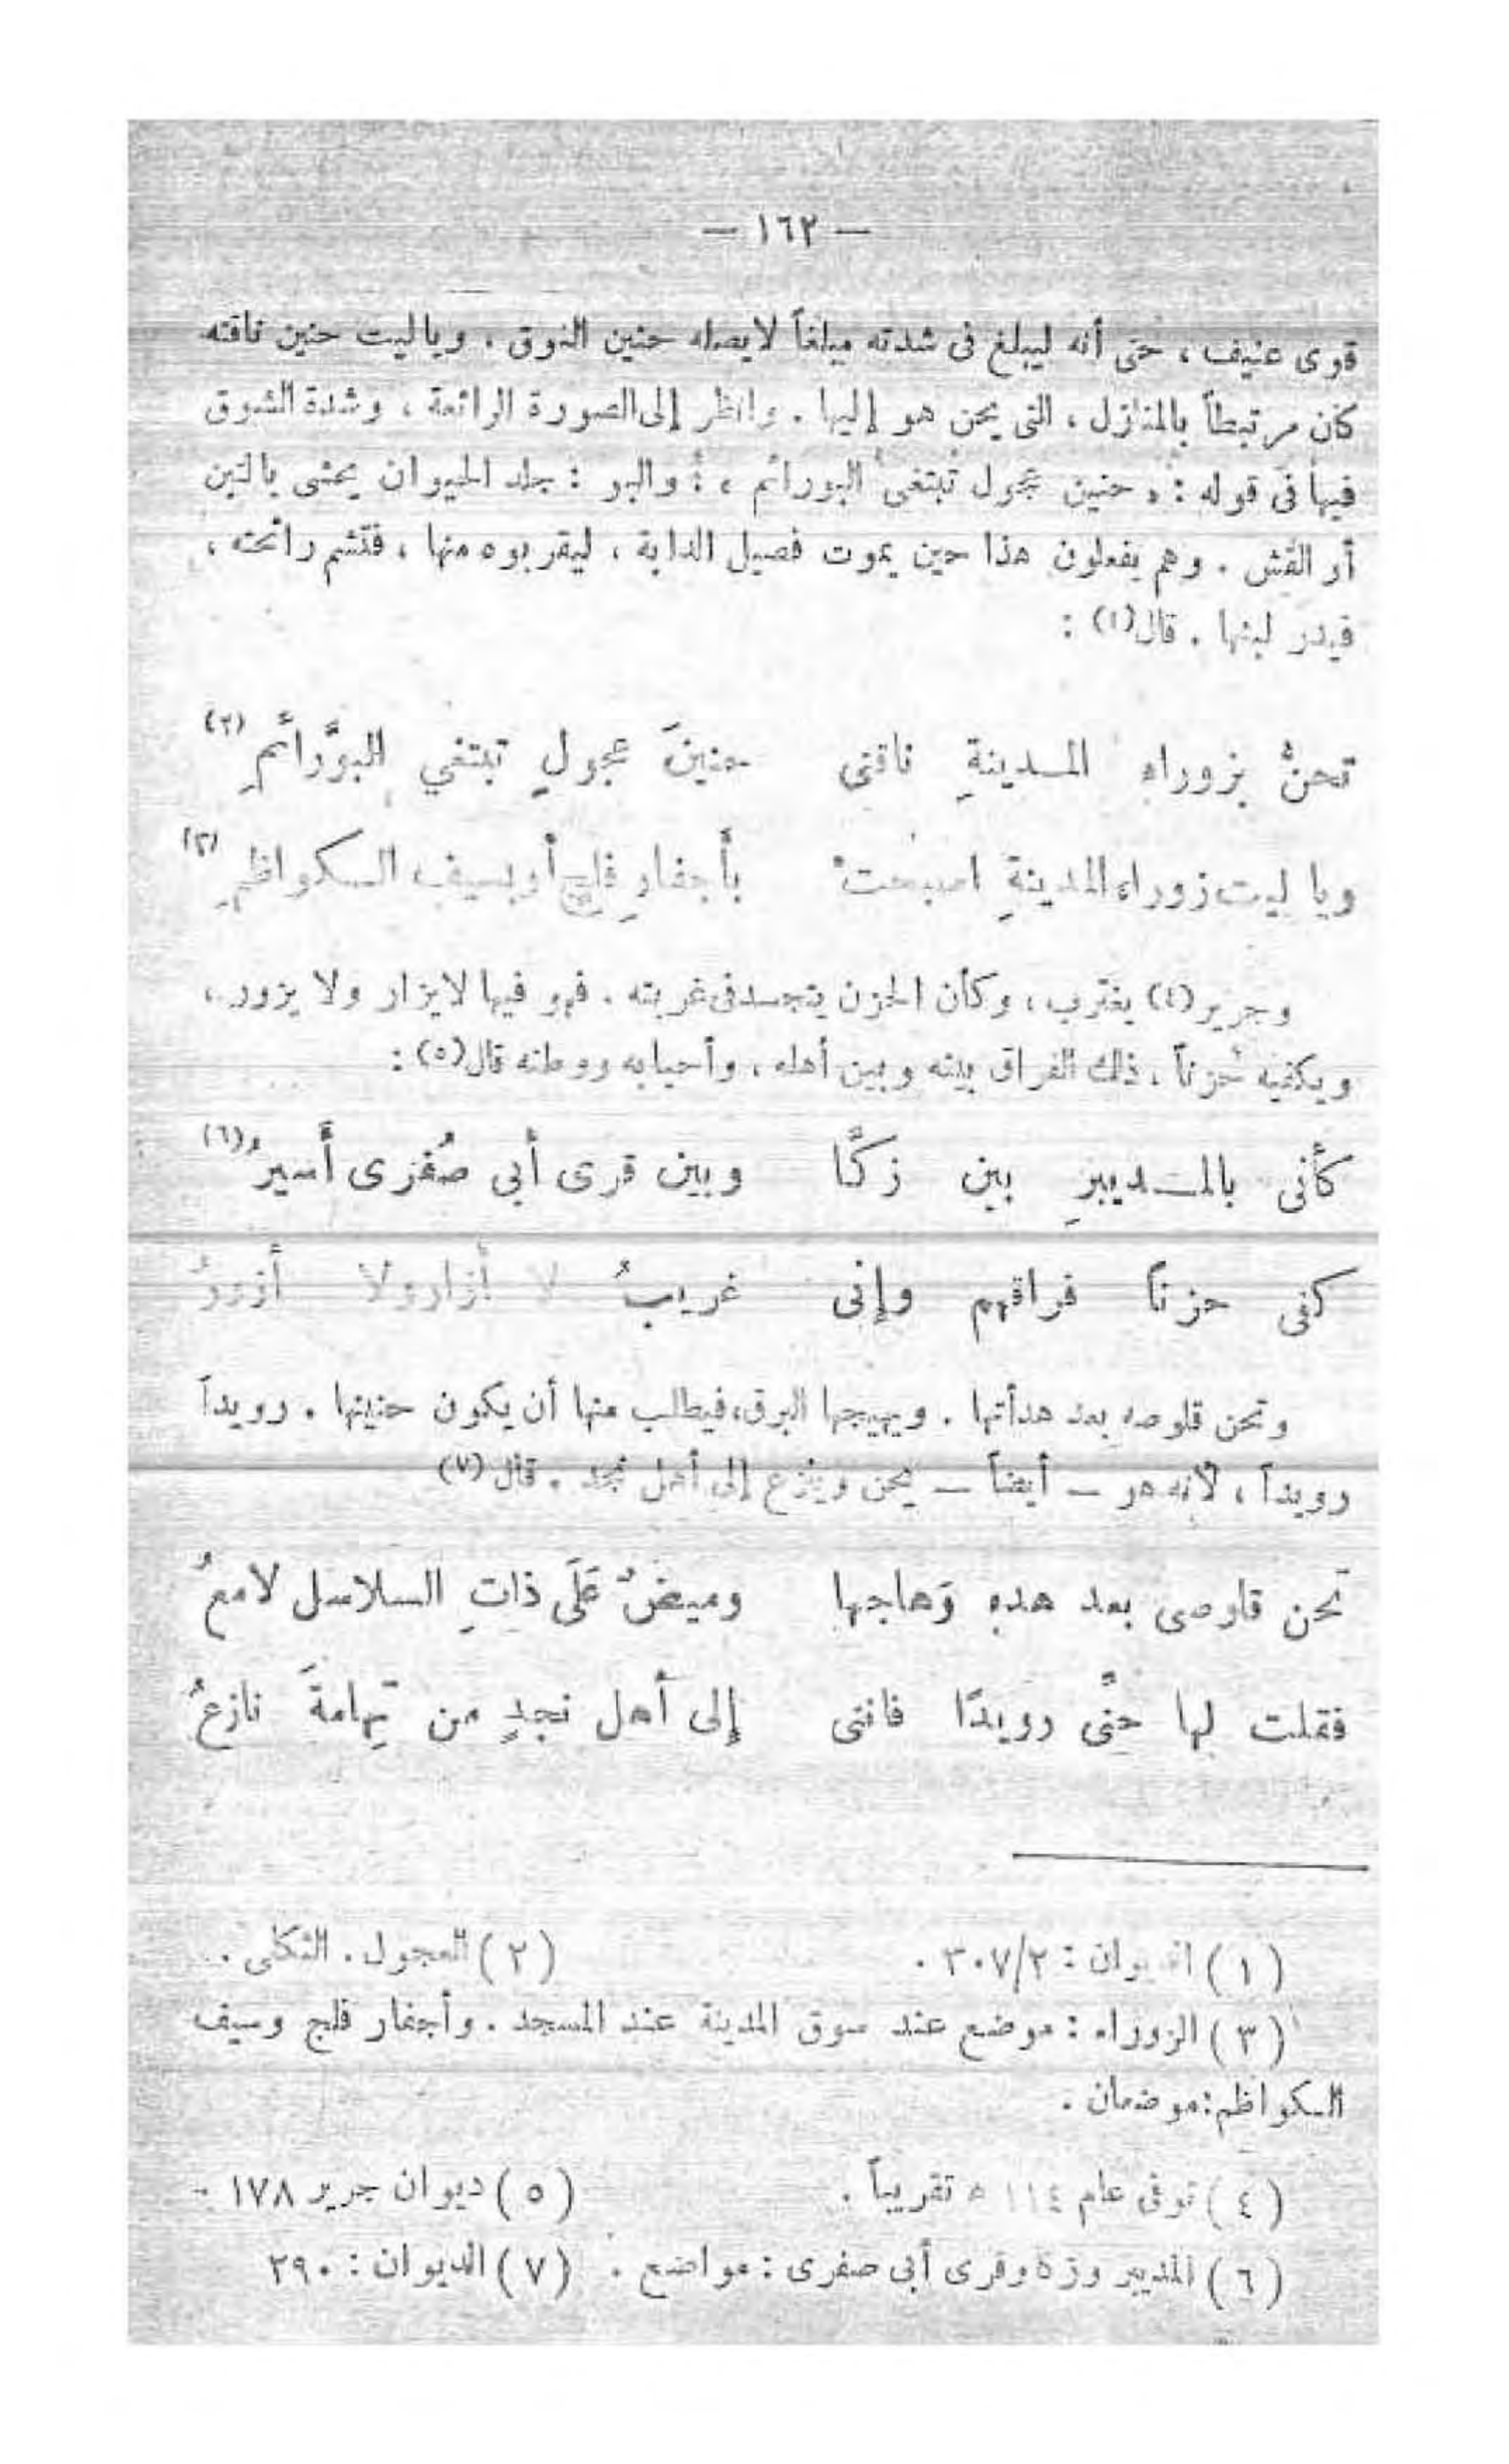 — ١٦٢ —
قوى عنيف ، حتى أنه ليبلغ فى شدته مبلغاً لايصله حنين النوق . وياليت حنين ناقته
كان مرتبطاً بالمنازل ، التى يحن هو إليها . وانظر إلى الصورة الرائعة ، وشدة الشوق
فيها فى قوله : « حنين عجول تبتغى البورائم » : والبو : جلد الحيوان يحشى بالتبن
أو القش . وهم يفعلون هذا حين يموت فصيل الدابة ، ليقربوه منها ، فتشم رائحته ،
فيدر لبنها . قال(١) :
تحنُّ بزوراء المدينةِ ناقتى حنينَ عجولٍ تبتغي البوَّرائمِ (٢)
ويا ليت زوراء المدينةِ اصبحتْ بأجفارِ فلجٍ أو بسيف الكواظمِ (٣)
وجرير(٤) يغترب ، وكأن الحزن يتجسد فى غربته . فهو فيها لايزار ولا يزور ،
ويكفيه حُزناً ، ذلك الفراق بينه وبين أهله ، وأحبابه ووطنه قال(٥) :
كأنى بالمديبرِ بين زكَّا وبين قرى أبى صُفرى أسيرُ (٦)
كفى حزناً فراقهم وإنى غريبُ لا أزار ولا أزورُ
وتحن قلوصه بعد هدأتها . ويهيجها البرق، فيطلب منها أن يكون حنينها . رويداً
رويداً ، لأنه هو — أيضاً — يحن وينزع إلى أهل نجد . قال (٧)
تحن قلوصى بعد هدء وَهاجها وميضٌ عَلَى ذاتِ السلاسل لامعُ
فقلت لها حنَّى رويدًا فانتى إلى أهل نجدٍ من تِهامةَ نازعُ
(١) الديوان : ٣٠٧/٢ . (٢) العجول . الثكلى .
(٣) الزوراء : موضع عند سوق المدينة عند المسجد . وأجفار فلج وسيف
الكواظم: موضعان .
(٤) توفى عام ١١٤ ه تقريباً . (٥) ديوان جرير ١٧٨ -
(٦) المديبر وزة وقرى أبى صفرى : مواضع . (٧) الديوان : ٢٩٠